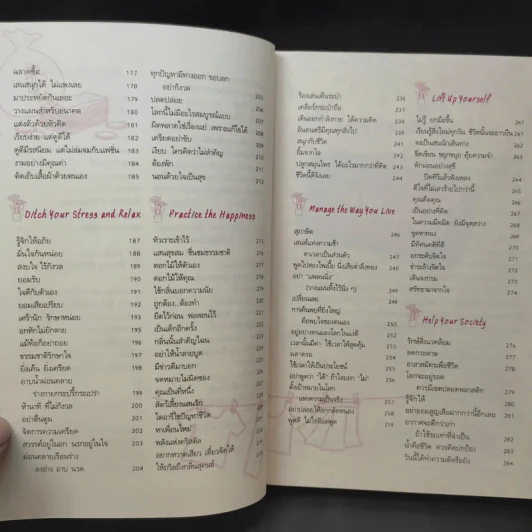 ฉลาดซื้อ 177
เล่นสนุกได้ ไม่แพงเลย 178
มาประหยัดกันเถอะ 179
วางแผนสำหรับอนาคต 180
แต่งตัวด้วยหัวคิด 181
เรียบง่าย แต่ดูดีได้ 182
ดูดีมีรสนิยม แต่ไม่ล่มจมกับแฟชั่น 183
งามอย่างมีคุณค่า 184
ตัดเย็บเสื้อผ้าด้วยตนเอง 185
Ditch Your Stress and Relax
รู้จักให้อภัย 187
มั่นใจกันหน่อย 188
สงบใจ ไร้กังวล 189
ยอมรับ 190
ใจดีกับตัวเอง 191
ยอมเสียเปรียบ 192
เศร้านัก รักษาหน่อย 193
อกหักไม่ยักตาย 194
แม้ท้อก็อย่าถอย 195
ธรรมชาติรักษาใจ 196
ยิ่งค้น ยิ่งเครียด 198
อาบน้ำผ่อนคลาย
ร่างกายกระปรี้กระเปร่า 199
หัวนาที ที่ไม่กังวล 200
อย่าตื่นตูม 201
จัดการความเครียด 202
สวรรค์อยู่ในอก นรกอยู่ในใจ 203
ผ่อนคลายเรือนร่าง
ลงอ่าง อาบ นวด 204
ทุกปัญหามีทางออก ขอบอก
อย่ากังวล 205
ปลดปล่อย 206
โลกนี้ไม่มีอะไรสมบูรณ์แบบ 207
ผิดพลาดใช่เรื่องแย่ เพราะแก้ไขได้ 208
เครียดอย่าขับ 209
เงียบ ใครคิดว่าไม่สำคัญ 210
ต้องพัก 211
นอนด้วยใจเป็นสุข 212
Practice the Happiness
หัวเราะเข้าไว้ 215
แสนสุขสม ชื่นชมธรรมชาติ 216
ดอกไม้ให้ตัวเอง
ดอกไม้ให้คุณ
ใช้กลิ่นบอกความนัย
ถูกต้อง...ต้องทำ
ยืดไว้ก่อน พ่อสอนไว้
เป็นเด็กอีกครั้ง
กลิ่นนั้นสำคัญไฉน
อย่าให้น้ำลายบูด
มีข่าวดีมาบอก
จดหมายไม่ผิดซอง
คุณเป็นที่หนึ่ง
สัตว์เลี้ยงแสนรัก
ไดอารี่ไขปัญหาชีวิต
หาเพื่อนใหม่
พลังแห่งคริสตัล
ให้อวัลถึงกลิ่นสุคนธ์
ร้องเล่นเต้นระบำ 236
เคลียร์กระเป๋าถือ 237
เดินออกกำลังกาย ได้ความคิด 239
อินเตอร์มีคุณทุกสิ่งไป
สนุกกับชีวิต 241
อิ่มจากใจ 242
ปลูกสมุนไพร ได้อะไรมากกว่าที่คิด 243
ชีวิตนี้ดีจังเลย 244
Manage the Way You Live
สุภาษิต 246
เสน่ห์แห่งความช้า
หาเวลาเป็นส่วนตัว 247
พูดไปสองไพเบี้ย นิ่งเสียตำลึงทอง 248
อย่า "แพลนนิ่ง"
(วางแผนทิ้งไว้นิ่ง ๆ) 249
เปลี่ยนเลย 249
การค้นพบที่ยิ่งใหญ่
คือพบใจของตนเอง 250
อยู่อย่างคนมองโลกในแง่ดี 251
เวลานั้นมีค่า ใช้เวลาให้สุดคุ้ม 252
ฉลาดรอ 254
ใช้เวลาให้เป็นประโยชน์ 255
อย่าพูดว่า "ได้" ถ้าใจบอก "ไม่" 256
ตั้งเป้าหมายในโลก
แห่งความเป็นจริง 257
อย่าปล่อยให้อากาศติดหนอง 258
พูดดี ไม่ใช่ดีแต่พูด 259
Lift Up Yourself
ไม่รู้ ยกมือขึ้น
เรียนรู้สิ่งใหม่ทุกวัน
จงเป็นเช่นนักเดินทาง
ขีดเขียน ซนุกซนุก คุ้ยความจำ
พักผ่อนอย่างสุขี
ปิดทีวีแล้วฟังเพลง
ดีใจที่ไม่เลวร้ายไปกว่านี้
คุณคือคุณ
เป็นอย่างที่คิด
ในความมืดมิด ยังมีจุดสว่าง
ขุดหาทอง
มีทัศนคติที่ดี
ยกระดับจิตใจ 271
ชำระล้างจิตใจ 272
เดินจงกรม 273
ศรัทธามาจากใจ 274
Help Your Society
รักษ์สิ่งแวดล้อม 276
ลดกระดาษ 277
อาสาสมัครเพื่อชีวิต 278
โลกจะอยู่รอด
ควรมีเขตปลอดพลาสติก 279
รู้จักให้ 280
อย่ายอมสูญเสียมากกว่านี้อีกเลย 281
อากาศจะดีกว่าเก่า
ถ้าใช้รถเท่าที่จำเป็น 282
น้ำคือชีวิต ควรคิดปกป้อง 283
วันนี้ได้ทำความดีหรือยัง 284